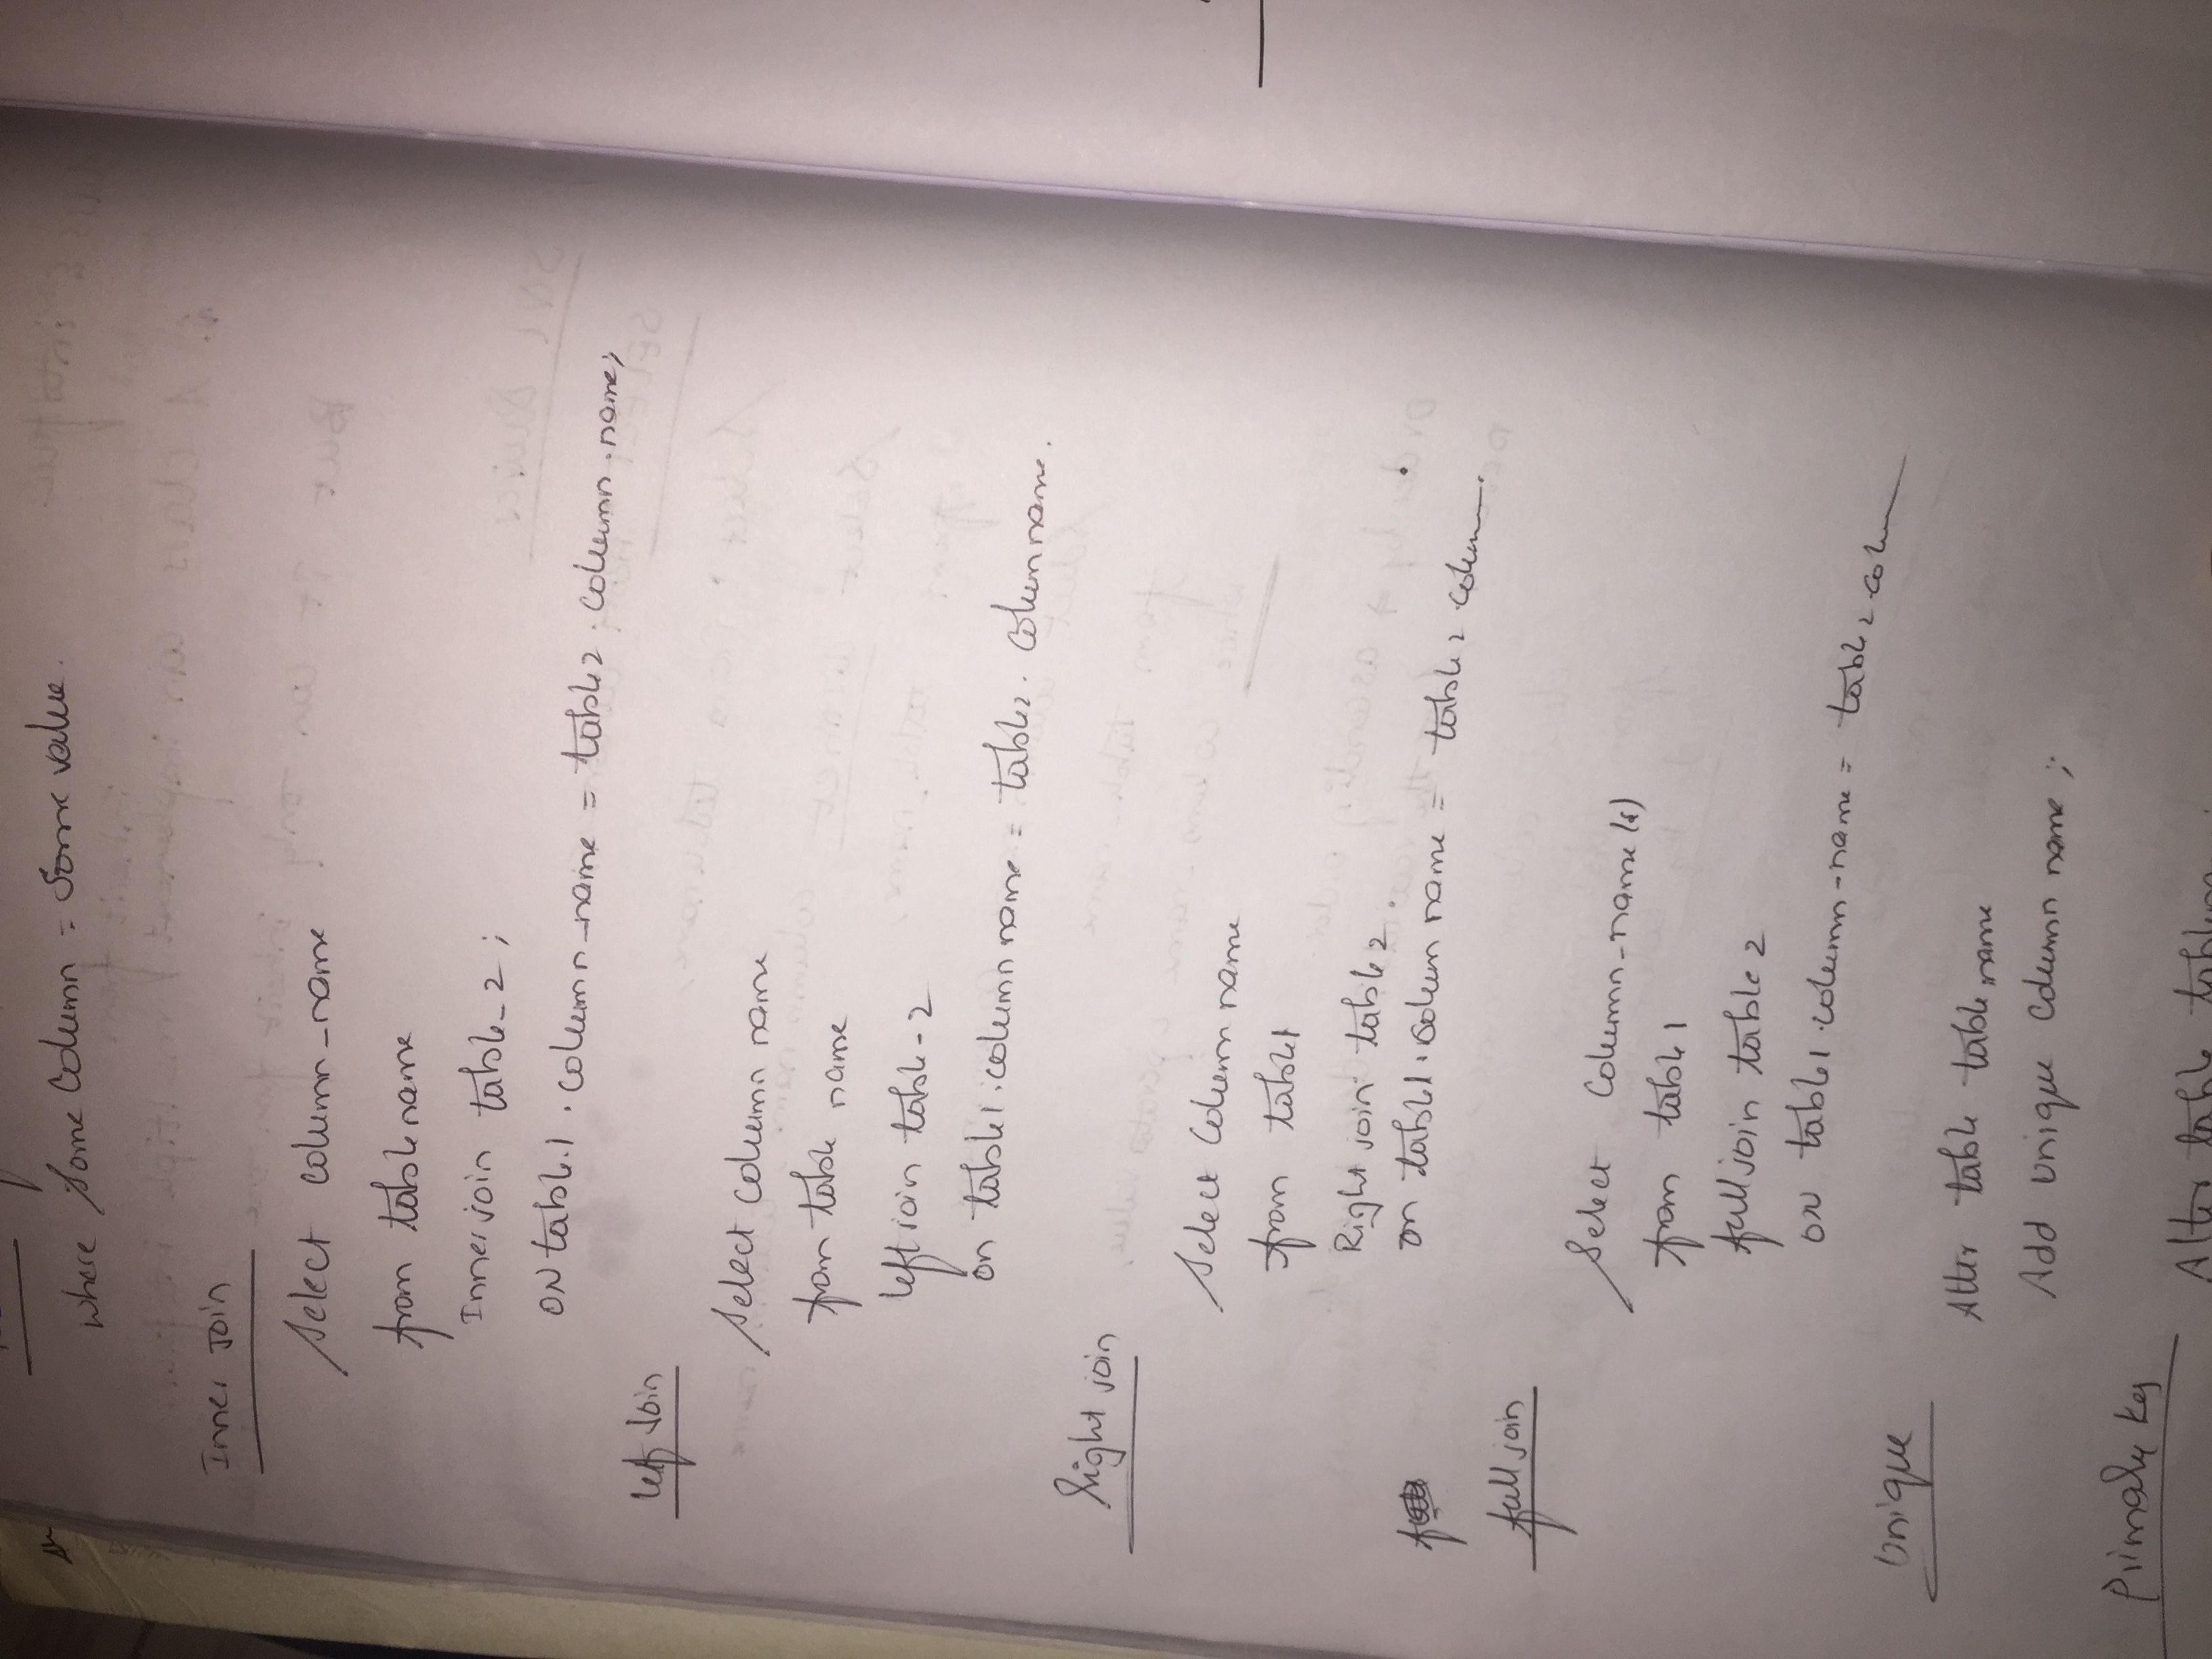 where Some Column = Some value.
Inner Join
Select column_name
from tablename
Inner join table_2 ;
ON table.1 . column_name = table2 . column.name;
left Join
Select column name
from table name
left join table-2
on table1.column name = table2. Colum name.
Right join
Select Column name
from table1
Right join table2.
on table1.colum name = table2.colum
full join
Select Column_name(s)
from table1
full join table2
on table1.column-name = table2.colum
Unique
Alter table table name
Add Unique Column name ;
Primary Key
Alter table